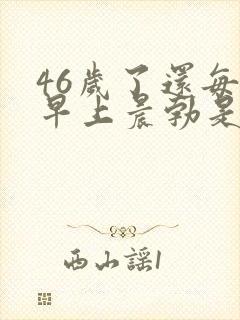 46歲了還每
早上晨勃是
西山謡1